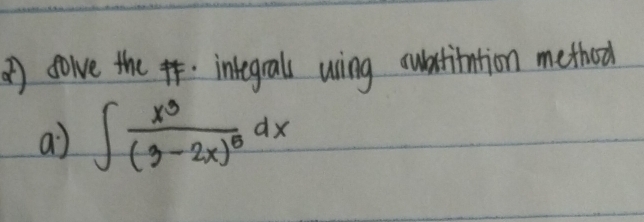 2) solve the ff. integrals using substitution method
a.) ∫ x³/(3-2x)⁵ dx